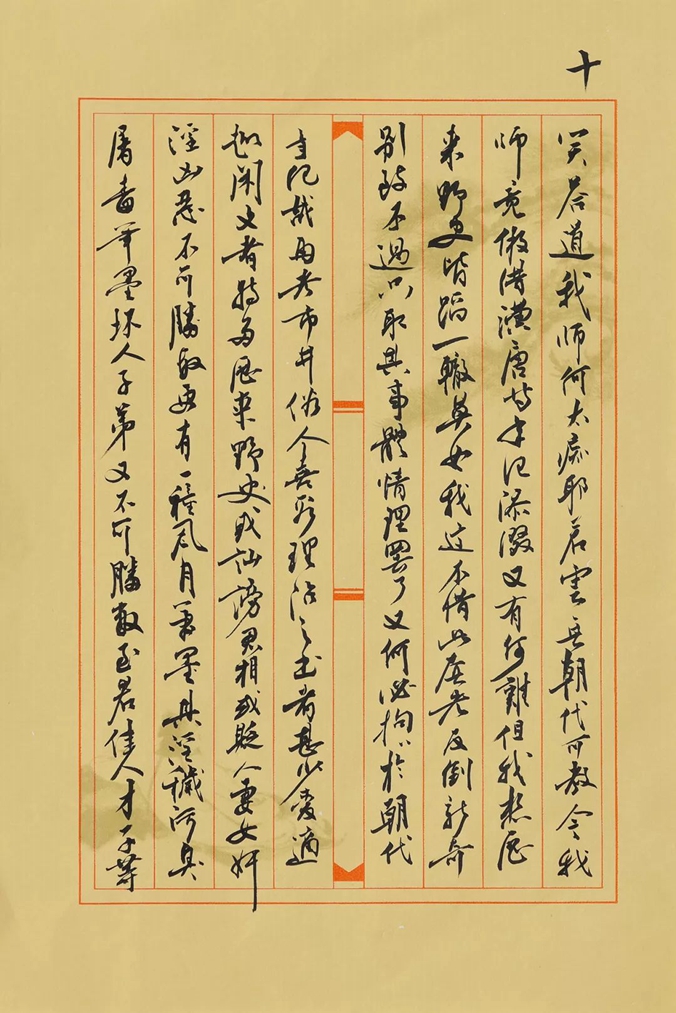 十
笑答道我师何太痴耶若云无朝代可考今我
师竟假借漢唐等年纪添缀又有何難但我想历
来野史皆蹈一轍莫如我这不借此套者反倒新奇
别致不過只取其事體情理罢了又何必拘拘於朝代
年纪哉再者市井俗人喜看理治之书者甚少爱適
趣闲文者特多历来野史或讪谤君相或贬人妻女奸
淫凶恶不可勝数更有一種风月笔墨其淫穢污臭
屠毒笔墨坏人子弟又不可勝数至若佳人才子等